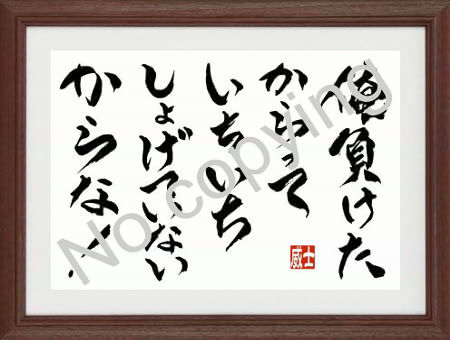 俺負けた
からって
いちいち
しょげていない
からな!!
威士
No copying